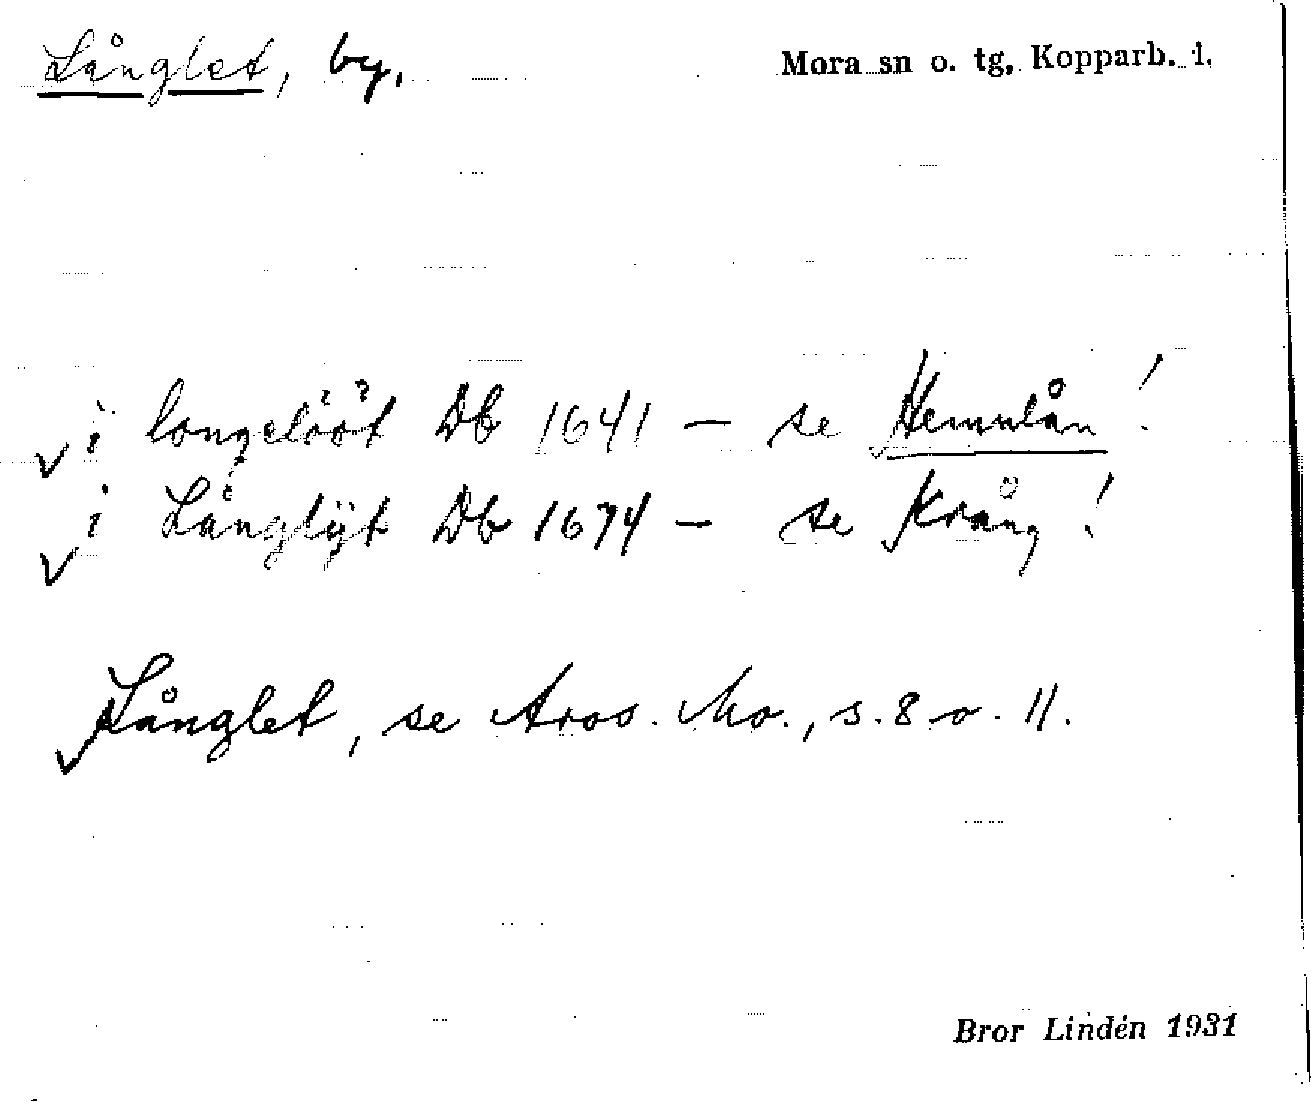 Långlet, by.
Mora sn o. tg, Kopparb. l.
i longelööt Db 1641 – se Hemulån!
i Långlÿt Db 1674 – se Krång!
Långlet, se Aros. Mo., s. 8 o. 11.
Bror Lindén 1931